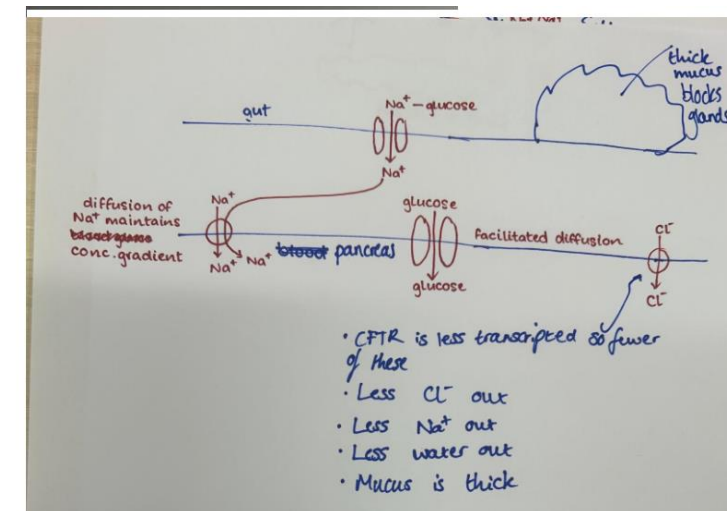 thick
mucus
blocks
glands
gut
Na⁺-glucose
Na⁺
diffusion of
Na⁺ maintains
conc. gradient
Na⁺
Na⁺
Na⁺
blood pancreas
glucose
glucose
facilitated diffusion
Cl⁻
Cl⁻
· CFTR is less transcripted so fewer
of these
· Less Cl⁻ out
· Less Na⁺ out
· Less water out
· Mucus is thick